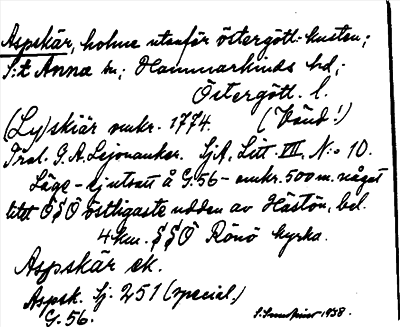 Aspskär, holme utanför östergötl. kusten;
S:t Anna sn; Hammarkinds hd;
Östergötl. l.
(Ly)skiär omkr. 1774. (Vänd!)
G.A. Lejonanker. SjA, Litt. III, N:o 10.
Läge - ej utsatt å G.56 - omkr. 500 m. något
östligaste udden av Hästön, bel.
4 km. SSO Rönö kyrka.
Aspskär ek.
Aspsk. Sj. 251 (special.)
G. 56. 1938.